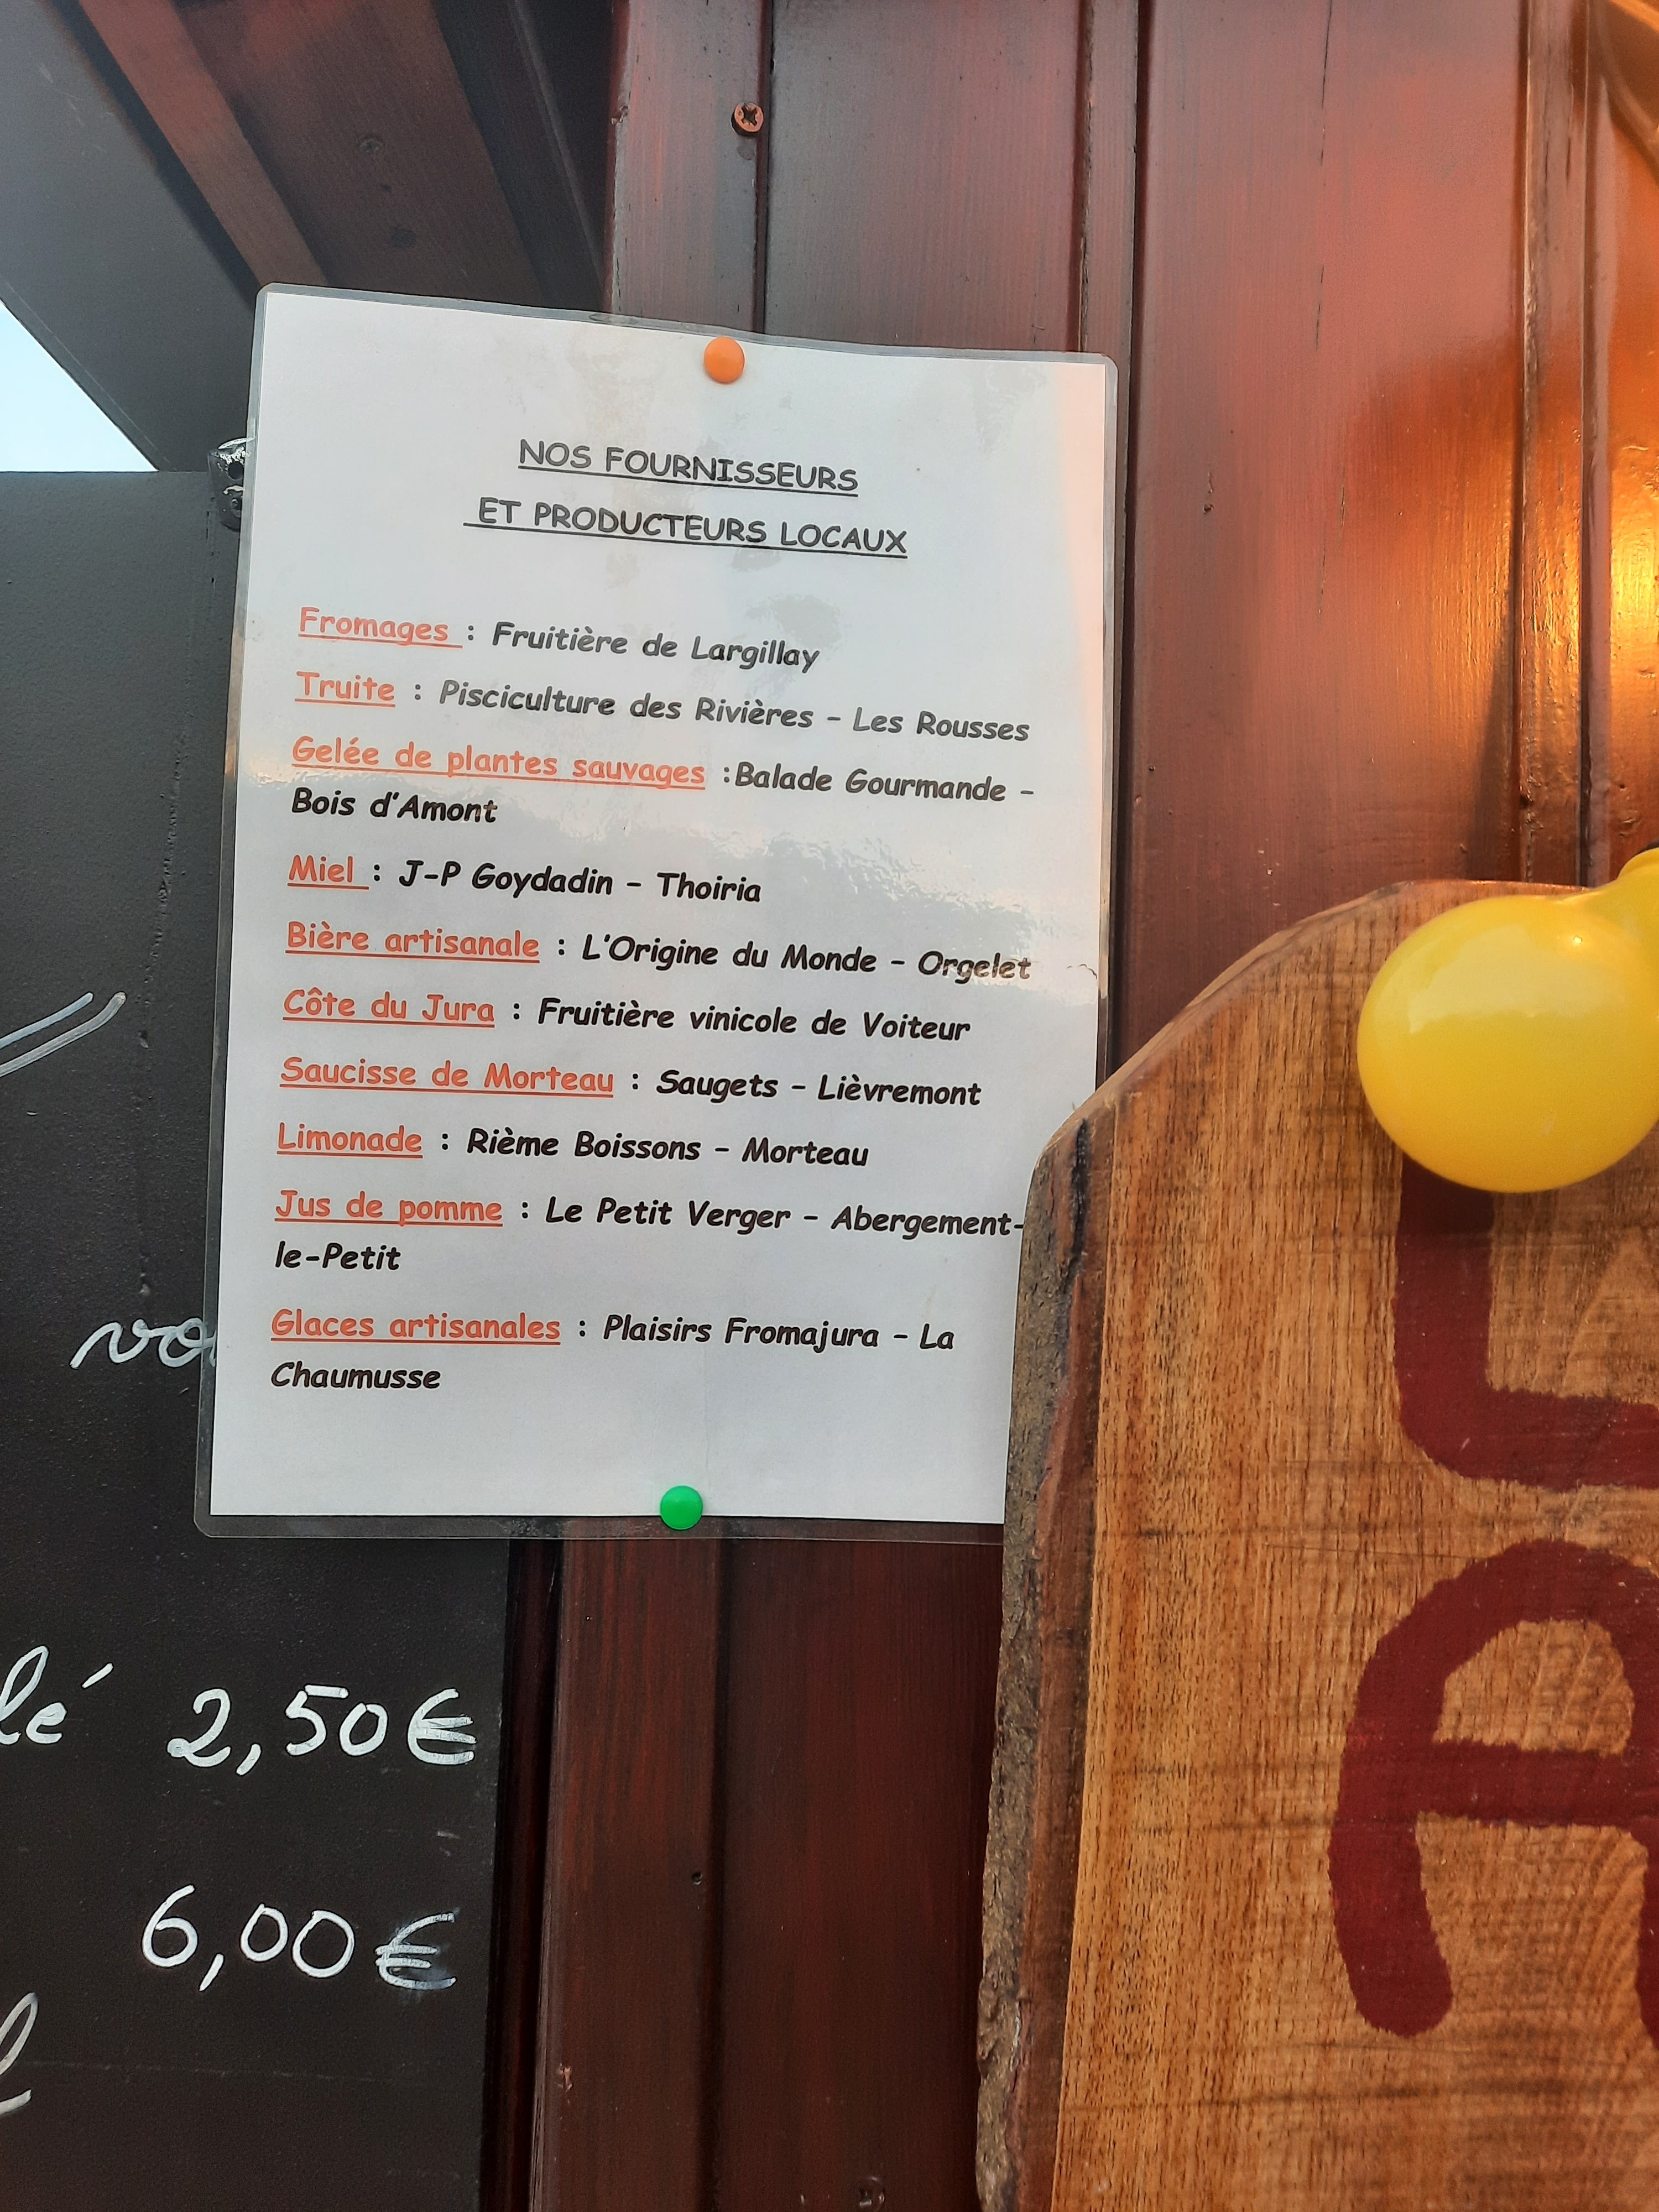 NOS FOURNISSEURS
ET PRODUCTEURS LOCAUX
Fromages : Fruitière de Largillay
Truite : Pisciculture des Rivières – Les Rousses
Gelée de plantes sauvages :Balade Gourmande –
Bois d'Amont
Miel : J-P Goydadin – Thoiria
Bière artisanale : L'Origine du Monde – Orgelet
Côte du Jura : Fruitière vinicole de Voiteur
Saucisse de Morteau : Saugets – Lièvremont
Limonade : Rième Boissons – Morteau
Jus de pomme : Le Petit Verger – Abergement-
le-Petit
Glaces artisanales : Plaisirs Fromajura – La
Chaumusse
2,50€
6,00€